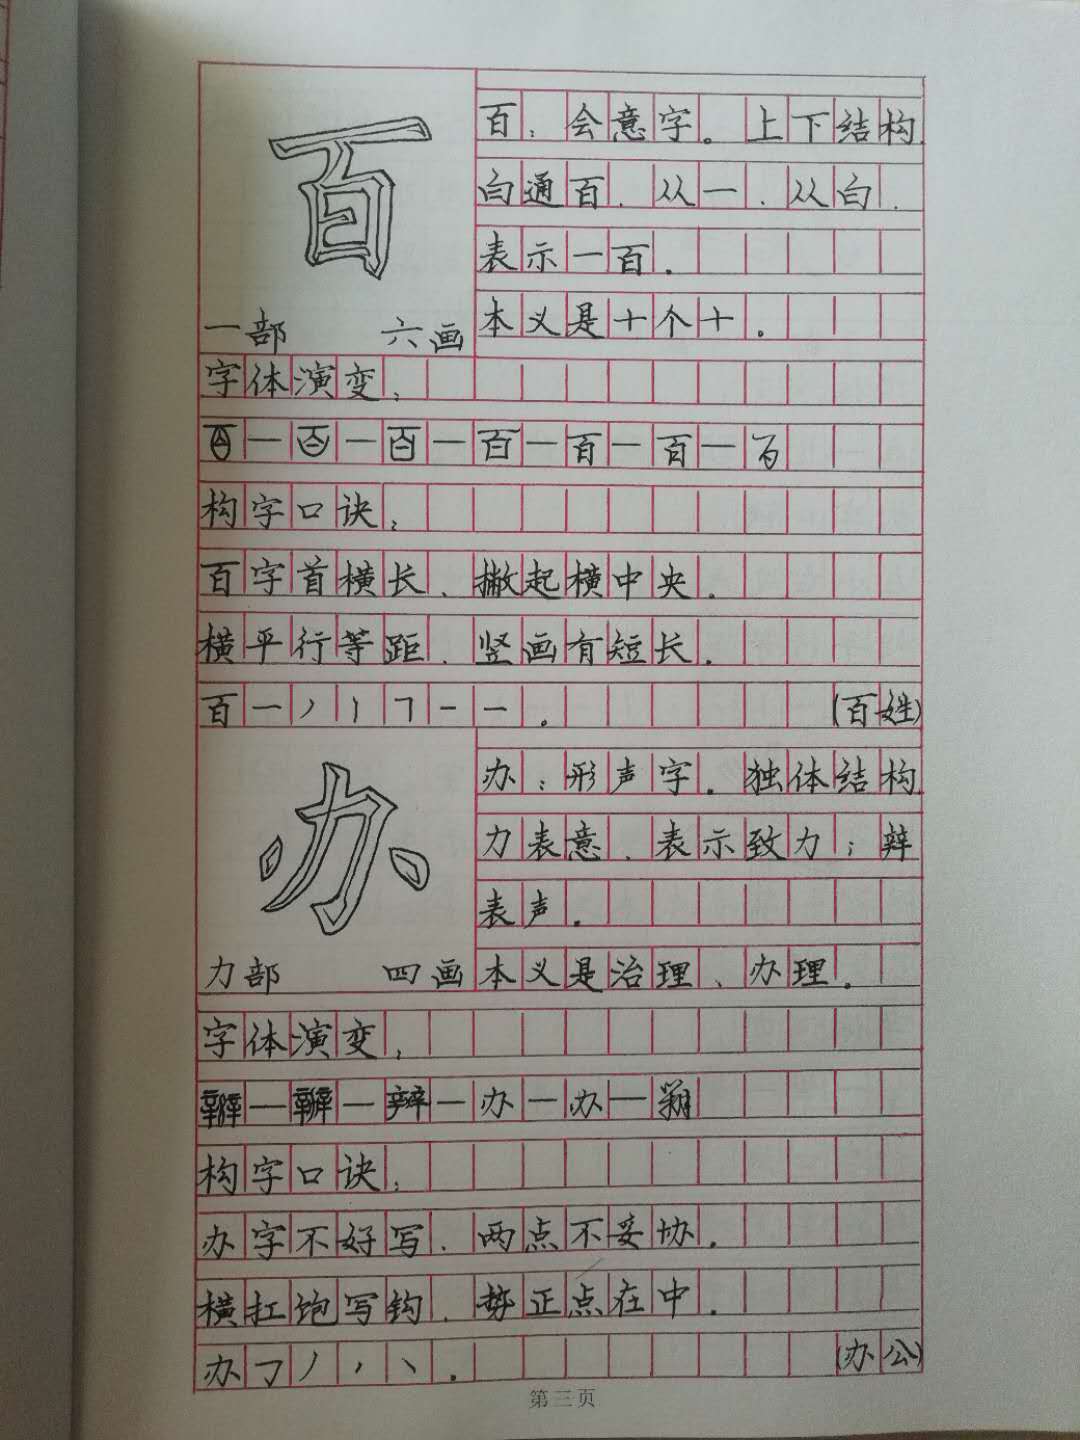 百
一部 六画
百：会意字。上下结构.
白通百、从一、从白.
表示一百.
本义是十个十。
字体演变：
百一百一百一百一百一百一百
构字口诀：
百字首横长、撇起横中央.
横平行等距、竖画有短长.
百一丿丨㇕一一.(百姓)
办
力部 四画
办：形声字。独体结构.
力表意、表示致力；辡
表声.
本义是治理、办理.
字体演变：
辦一辦一辦一办一办一
构字口诀：
办字不好写.两点不妥协.
横扛饱写钩.势正点在中.
办㇆丿丶丶.(办公)
第三页